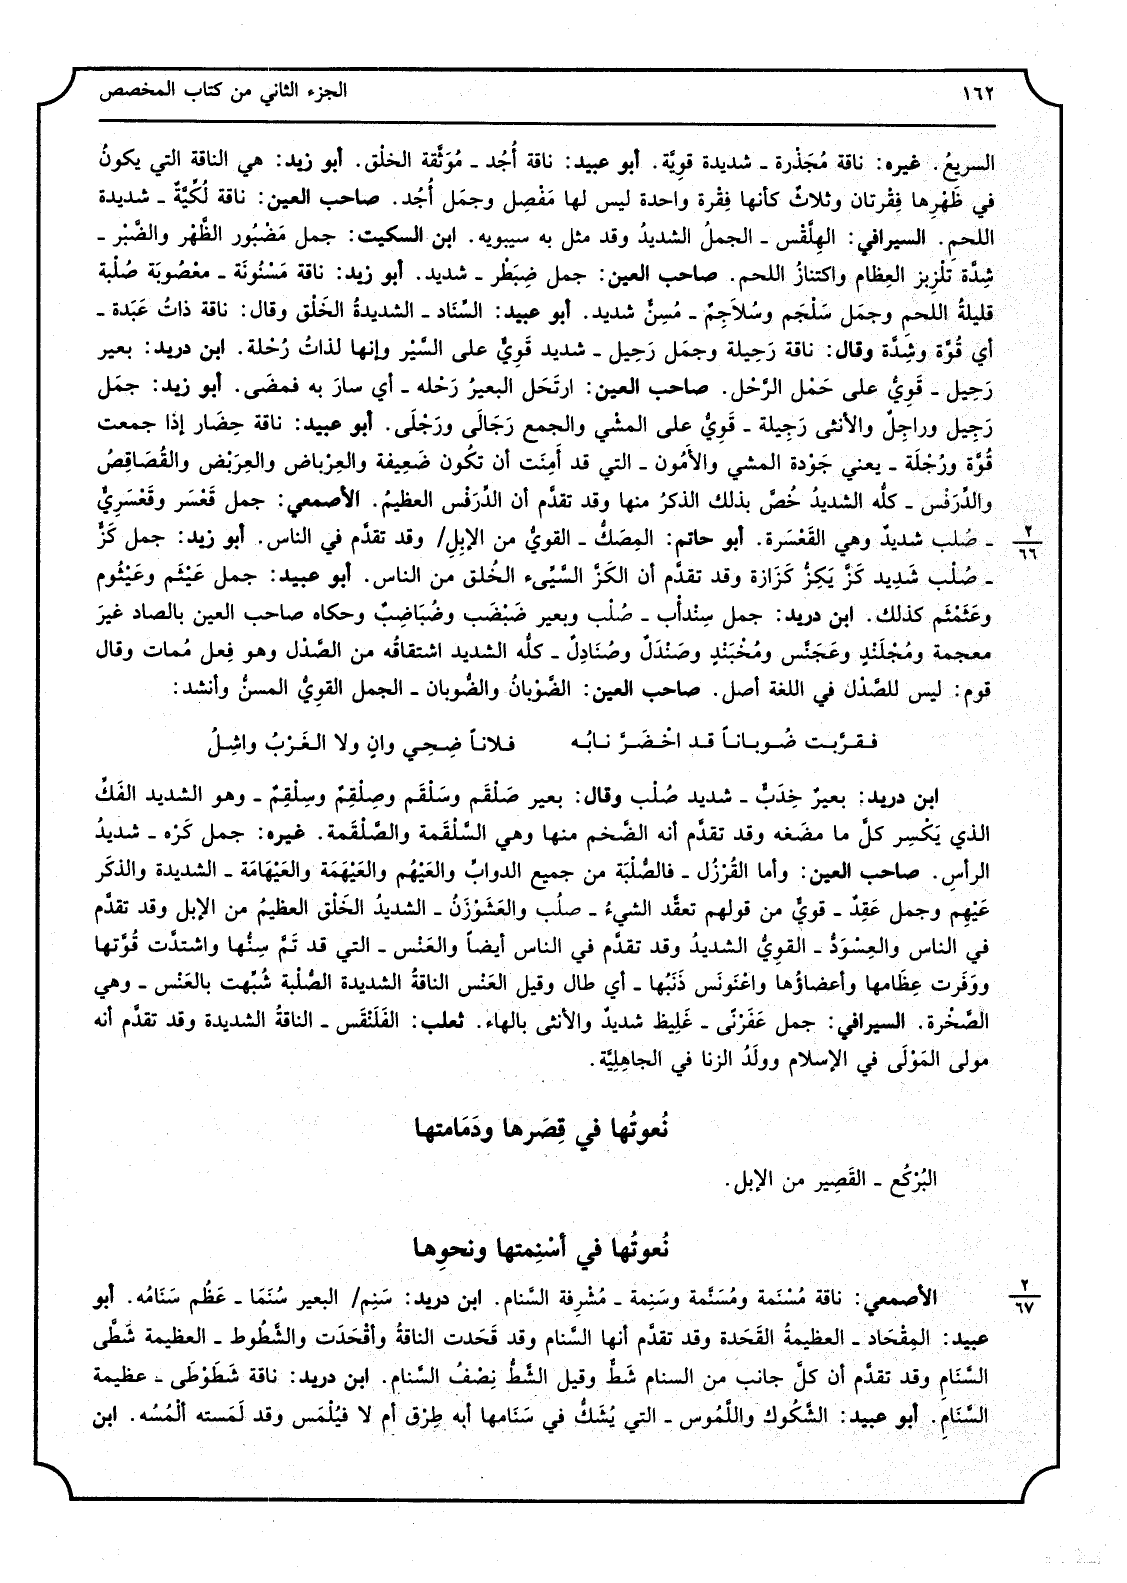 ١٦٢
الجزء الثاني من كتاب المخصص
السريعُ. غيره: ناقة مُجَذْرة ـ شديدة قويَّة. أبو عبيد: ناقة أُجُد ـ مُوَثَّقة الخلْق. أبو زيد: هي الناقة التي يكونُ
في ظَهْرِها فِقْرتان وثلاثٌ كأنها فِقْرة واحدة ليس لها مَفْصِل وجمَل أُجُد. صاحب العين: ناقة لُكِّيَّةٌ ـ شديدة
اللحم. السيرافي: الهِلَّقْس ـ الجملُ الشديدُ وقد مثل به سيبويه. ابن السكيت: جمل مَضْبُور الظَّهْر والضَّبْر ـ
شِدَّة تلْزِيز العِظام واكتنازُ اللحم. صاحب العين: جمل ضِبَطْر ـ شديد. أبو زيد: ناقة مَسْنُونَة ـ معْصُوبَة صُلْبة
قليلةُ اللحم وجمَل سَلْجَم وسُلاَجِمٌ ـ مُسِنٌّ شديد. أبو عبيد: السِّنَاد ـ الشديدةُ الخَلْق وقال: ناقة ذاتُ عَبَدة ـ
أي قُوَّة وشِدَّة وقال: ناقة رَحِيلة وجمَل رَحِيل ـ شديد قَوِيٌّ على السَّيْر وإنها لذاتُ رُحْلة. ابن دريد: بعير
رَحِيل ـ قَوِيٌّ على حَمْل الرَّحْل. صاحب العين: ارتَحَل البعيرُ رَحْله ـ أي سارَ به فمضَى. أبو زيد: جمَل
رَجِيل وراجِلٌ والأنثى رَجِيلة ـ قَوِيٌّ على المشْي والجمع رَجَالَى ورَجْلَى. أبو عبيد: ناقة حِضَار إذا جمعت
قُوَّة ورُجْلَة ـ يعني جَوْدة المشي والأَمُون ـ التي قد أَمِنَت أن تكُون ضَعِيفة والعِرْباض والعِرَبْض والقُصَاقِصُ
والدِّرَفْس ـ كلُّه الشديدُ خُصَّ بذلك الذكرُ منها وقد تقدَّم أن الدِّرَفْس العظيمُ. الأصمعي: جمل قَعْسَر وقَعْسَرِيٌّ
ـ صُلب شديدٌ وهي القَعْسَرة. أبو حاتم: المِصَكُّ ـ القويُّ من الإبِل/ وقد تقدَّم في الناس. أبو زيد: جمل كَزٌّ
٢
٦٦
ـ صُلْب شَدِيد كَزَّ يَكِزُّ كَزَازة وقد تقدَّم أن الكَزَّ السَّيِّىء الخُلق من الناس. أبو عبيد: جمل عَيْثَم وعَيْثُوم
وعَثَمْثَم كذلك. ابن دريد: جمل سِنْدأْب ـ صُلْب وبعير ضَبْضَب وضُبَاضِبٌ وحكاه صاحب العين بالصاد غيرَ
معجمة ومُجْلَنْدٍ وعَجَنَّس ومُخْبَنْدٍ وصَنْدَلٌ وصُنَادِلٌ ـ كلُّه الشديد اشتقاقُه من الصَّدْل وهو فِعل مُمات وقال
قوم: ليس للصَّدْل في اللغة أصل. صاحب العين: الضَّوْبانُ والضُّوبان ـ الجمل القويُّ المسنُّ وأنشد:
فقرَّبت ضُوباناً قد اخْضَرَّ نابُه فلاناً ضِحِي وانٍ ولا الغَرْبُ واشِلُ
ابن دريد: بعيرٌ خِدَبٌّ ـ شديد صُلْب وقال: بعير صَلْقَم وسَلْقَم وصِلْقِمٌ وسِلْقِمٌ ـ وهو الشديد الفَكِّ
الذي يَكْسِر كلَّ ما مضَغه وقد تقدَّم أنه الضَّخم منها وهي السَّلْقَمة والصَّلْقَمة. غيره: جمل كَرْه ـ شديدُ
الرأسِ. صاحب العين: وأما القُرْزُل ـ فالصُّلْبَة من جميع الدوابِّ والعَيْهُم والعَيْهَمَة والعَيْهَامَة ـ الشديدة والذكَر
عَيْهِم وجمل عَقِدٌ ـ قويٌّ من قولهم تعقَّد الشيءُ ـ صلُب والعَشَوْزَنُ ـ الشديدُ الخَلْق العظيمُ من الإبل وقد تقدَّم
في الناس والعِسْوَدُّ ـ القوِيُّ الشديدُ وقد تقدَّم في الناس أيضاً والعَنْس ـ التي قد تَمَّ سِنُّها واشتدَّت قُوَّتها
ووَفَرت عِظَامها وأعضاؤُها واعْنَونَس ذَنَبُها ـ أي طال وقيل العَنْس الناقةُ الشديدة الصُّلْبة شُبِّهت بالعَنْس ـ وهي
الصَّخْرة. السيرافي: جمل عَفَرْنًى ـ غَلِيظ شديدٌ والأنثى بالهاء. ثعلب: الفَلَنْقَس ـ الناقةُ الشديدة وقد تقدَّم أنه
مولى المَوْلَى في الإسلام وولَدُ الزنا في الجاهِليَّة.
نُعوتُها في قِصَرها ودَمَامتها
البُرْكُع ـ القَصِير من الإبل.
نُعوتُها في أسْنِمتها ونحوِها
الأصمعي: ناقة مُسْنَمة ومُسَنَّمة وسَنِمة ـ مُشْرِفة السَّنام. ابن دريد: سَنِم/ البعير سُنَمَا ـ عَظُم سَنَامُه. أبو
٢
٦٧
عبيد: المِقْحَاد ـ العظيمةُ القَحَدة وقد تقدَّم أنها السَّنام وقد قَحَدت الناقةُ وأقْحَدَت والشَّطُوط ـ العظيمة شَطَّى
السَّنَامِ وقد تقدَّم أن كلَّ جانب من السنام شَطٌّ وقيل الشَّطُّ نِصْفُ السَّنام. ابن دريد: ناقة شَطَوْطَى ـ عظيمة
السَّنَامِ. أبو عبيد: الشَّكُوك واللَّمُوس ـ التي يُشَكُّ في سَنَامها أبه طِرْق أم لا فيُلْمَس وقد لَمَسته ألْمُسُه. ابن